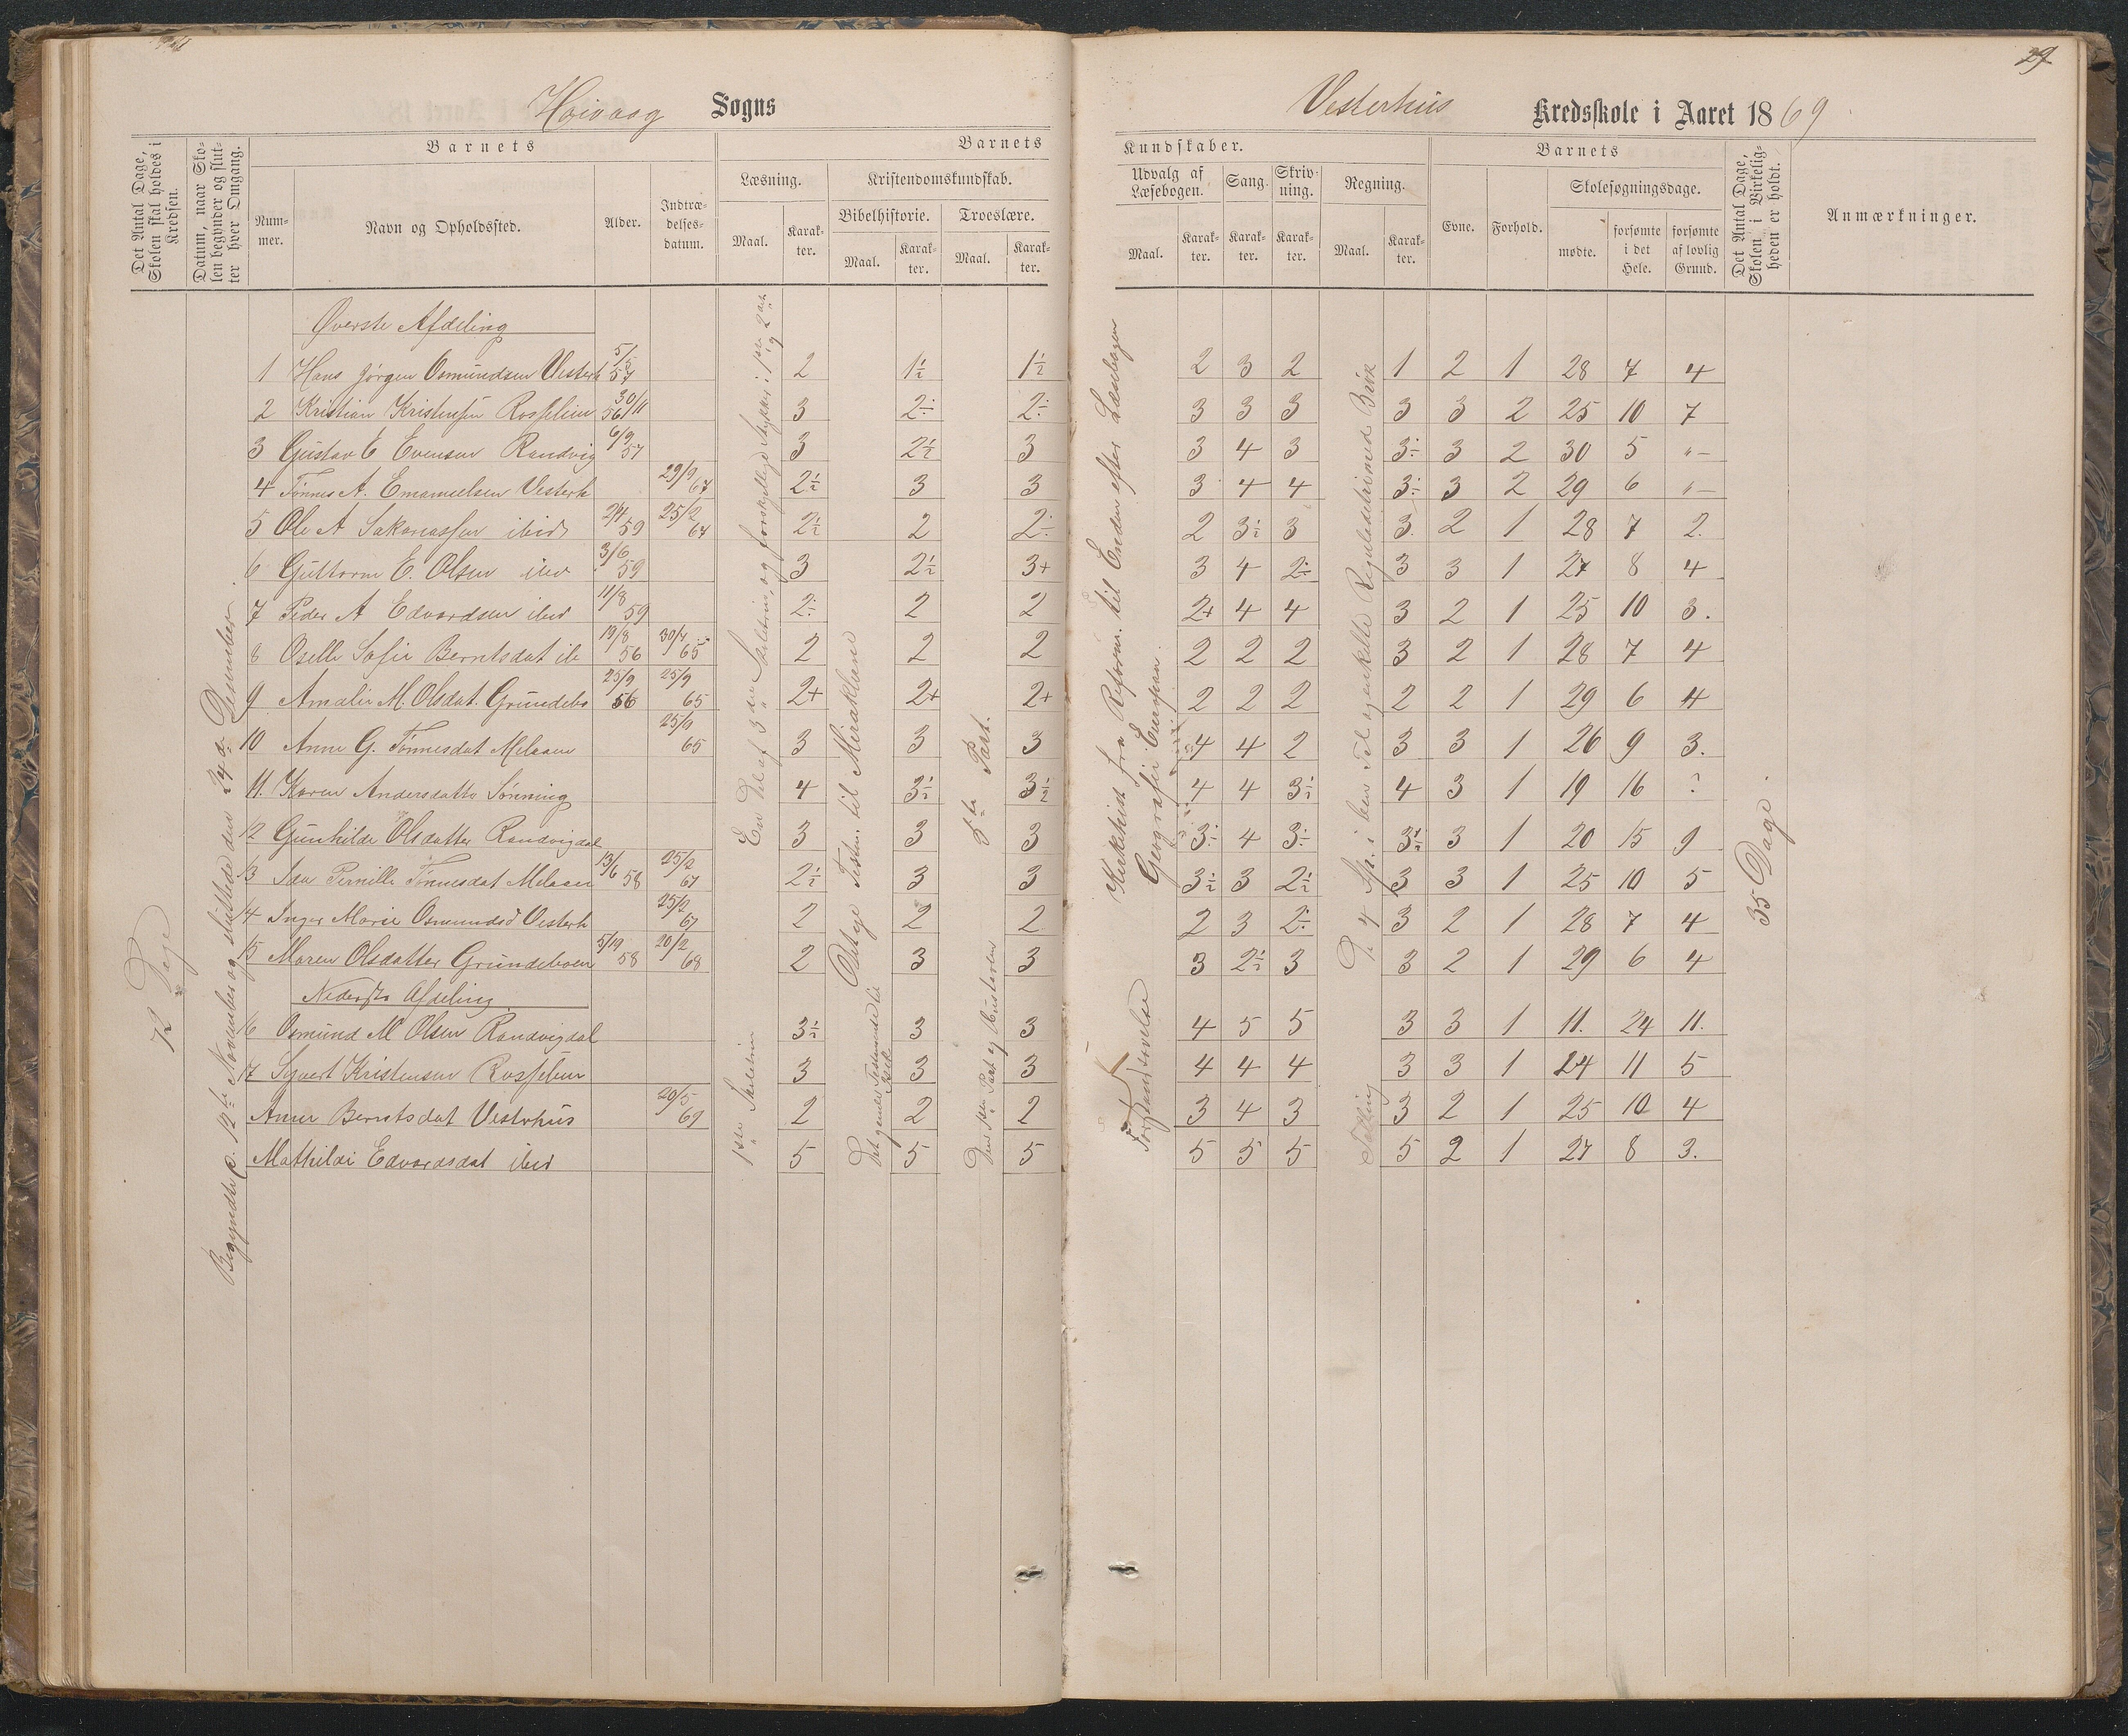 29
Høivaag Sogns
Vesterhus Kredsskole i Aaret 1869
Det Antal Dage, Skolen skal holdes i Kredsen.
Datum, naar Skolen begynder og slutter hver Omgang.
Barnets
Nummer.
Navn og Opholdssted.
Alder.
Indtrædelsesdatum.
Barnets
Læsning.
Maal.
Karakter.
Kristendomskundskab.
Bibelhistorie.
Maal.
Karakter.
Troeslære.
Maal.
Karakter.
Kundskaber.
Udvalg af Læsebogen.
Maal.
Karakter.
Sang.
Karakter.
Skrivning.
Karakter.
Regning.
Maal.
Karakter.
Barnets
Evne.
Forhold.
Skolesøgningsdage.
mødte.
forsømte i det Hele.
forsømte af lovlig Grund.
Det Antal Dage, Skolen i Virkeligheden er holdt.
Anmærkninger.
72 Dage
Begyndte p. 12te November og sluttede den 24de Desember
Øverste Afdeling
1 Hans Jørgen Osmundsen Vesterh 5/5 57 2 1½ 1½ 2 3 2 1 2 1 28 7 4
2 Kristian Kristensen Rosselien 30/11 56 3 2÷ 2÷ 3 3 3 3 3 2 25 10 7
3 Gustav E Evensen Randvig 6/9 57 3 2½ 3 3 4 3 3÷ 3 2 30 5 "–
4 Tønnes A. Emanuelsen Vesterh 29/9 67 2½ 3 3 3 4 4 3÷ 3 2 29 6 "–
5 Ole A Sakariassen ibid 2/4 59 25/2 67 2½ 2 2÷ 2 3÷ 3 3. 2 1 28 7 2.
6 Guttorm E. Olsen ibid 3/6 59 3 2½ 3+ 3 4 2÷ 3 3 1 27 8 4
7 Peder A Edvardsen ibid 11/8 59 2÷ 2 2 2+ 4 4 3 2 1 25 10 3.
8 Oselle Sofie Berntsdat ib 19/8 56 30/4 65 2 2 2 2 2 2 3 2 1 28 7 4
9 Amalie M. Olsdat. Grundebo 25/9 56 25/9 65 2+ 2+ 2+ 2 2 2 2 2 1 29 6 4
10 Anne G. Tønnesdat Melaaen 25/9 65 3 3 3 4 4 2 3 3 1 26 9 3.
11. Karen Andersdatter Sønning 4 3÷ 3½ 4 4 3÷ 4 3 1 19 16 ?
12 Gunhilde Olsdatter Randvigdal 3 3 3 3÷ 4 3÷ 3½ 3 1 20 15 9
13 Ida Pernille Tønnesdat Melaaen 13/6 58 25/2 67 2½ 3 3 3½ 3 2½ 3 3 1 25 10 5
14 Inger Marie Osmundsd Vesterh 25/2 67 2 2 2 2 3 2÷ 3 2 1 28 7 4
15 Maren Olsdatter Grundeboen 5/10 58 20/2 68 2 3 3 3 2½ 3 3 2 1 29 6 4
Nederste Afdeling
16 Osmund M Olsen Randvigdal 3½ 3 3 4 5 5 3 3 1 11. 24 11.
17 Syvert Kristensen Rosselien 3 3 3 4 4 4 3 3 1 24 11 5
Anne Berntsdat Vesterhus 20/5 69 2 2 2 3 4 3 3 2 1 25 10 4
Mathilde Edvardsdat ibid 5 5 5 5 5 5 5 2 1 27 8 3.
En Del af 3die Skoletrin, og forskjellige Stykker i 1ste og 2det
1ste Skoletrin
Odstge Testm. til Miraklene
Det gamle Testamente
5te Part.
Den 1ste Part og Husstavlen
Kirkehist fra Reform. til Enden efter Læsebogen
Geografi: Europa.
Forstandsøvelse
De 4 Sp. i hele Tal og enkelte Reguladetri med Brøk
Tælling
35 Dage.